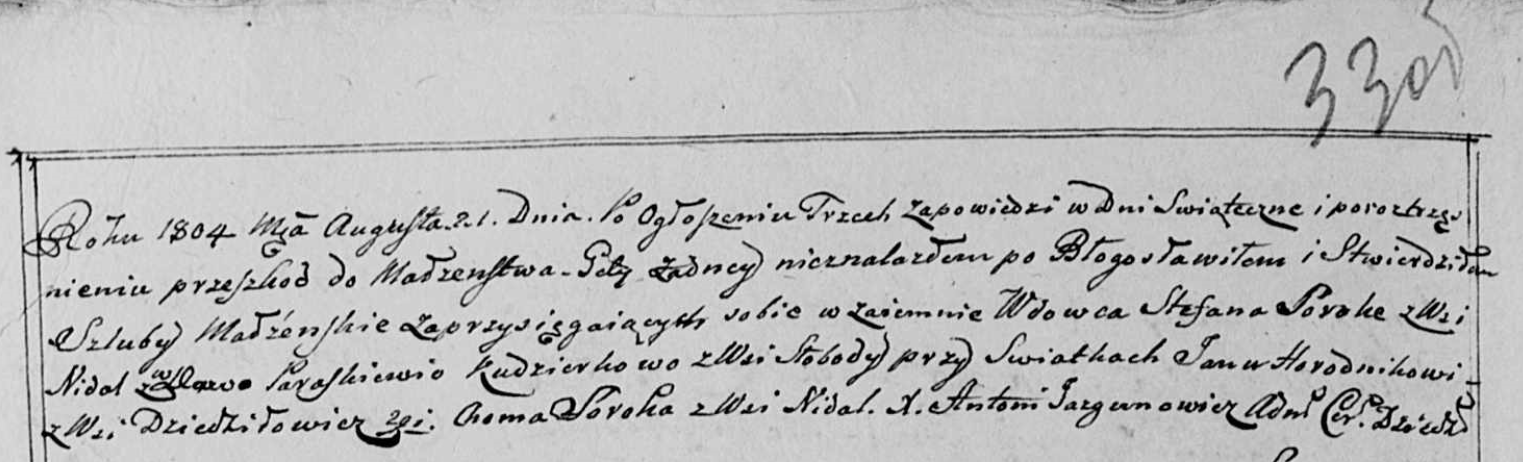 330
Rohu 1804 Mca Augusta 21. Dnia. Po Ogłoszeniu Trzech zapowiedzi w Dni Swiąteczne i po roztrzęs
nieniu przeszkod do Małzenstwa - Gdy żadney nieznalazłem po Błogosławiłem i Stwierdziłem
Szluby Małżeńskie zaprzysięgaiących sobie wzaiemnie Wdowca Stefana Soroke z Wsi
Nidal z Wdowo Paraskiewio Kudzierkowo z Wsi Słobody przy Swiatkach Janu Horodnikowi
z Wsi Dziedziłowicz 2gi. Choma Soroka z Wsi Nidal. X. Antoni Jazgunowicz Adm Cer. Dziedz